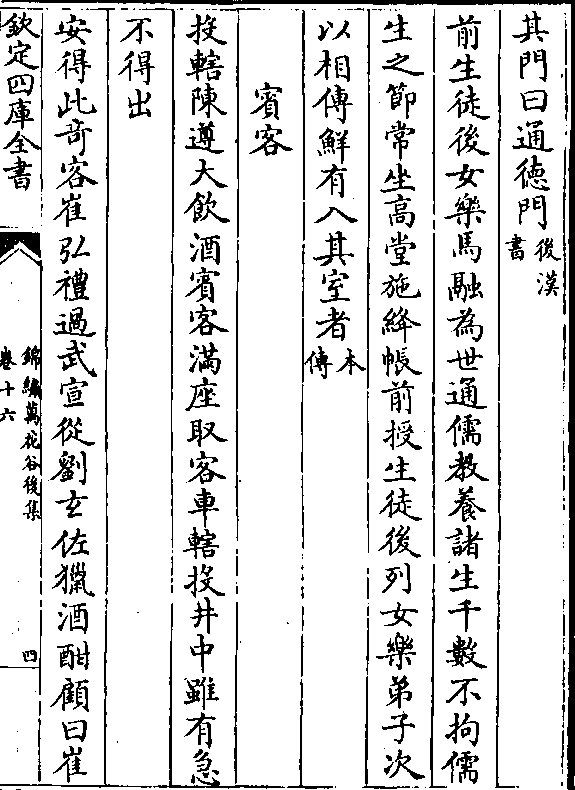 其門曰通徳門後漢書
前生徒後女樂馬融為世通儒教養諸生千數不拘儒
生之節常坐髙堂施絳帳前授生徒後列女樂弟子次
以相傳鮮有入其室者本傳
賓客
投轄陳遵大飲酒賓客滿座取客車轄投井中雖有急
不得出
安得此奇客崔弘禮過武宣從劉玄佐獵酒酣顧曰崔
欽定四庫全書
錦繡萬花谷後集
卷十六
四